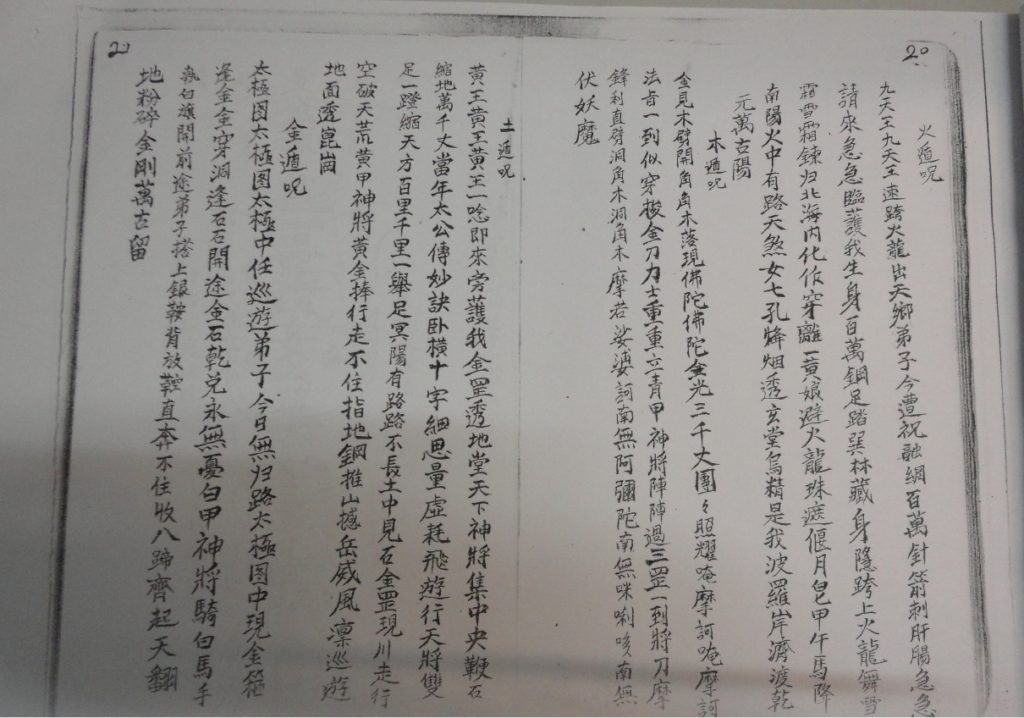 20
火遁呪
九天王九天王速跨火龍出天鄉弟子今遭祝融網百萬針箭刺肝腸急急
請來急急臨護我生身百萬鋼足踏巽林藏身隱跨上火龍舞雪
霜雪霜鍊归北海内化作穿離一黄娘避火龍珠遮偃月皂甲午馬降
南陽火中有路天煞女七孔烽烟透玄堂烏精是我波羅岸濟渡乾
元萬古陽
木遁呪
金見木劈開角角木落現佛陀佛陀金光三千丈團々照耀唵摩訶唵摩訶
法旨一到似穿梭金刀力士重重立青甲神將陣陣過三罡一到將刀摩
鋒利直劈洞角木洞角木摩若娑婆訶南無阿彌陀南無咪唎哆南無
伏妖魔
21
土遁呪
黄王黄王黄王一唸即來旁護我金罡透地堂天下神將集中央鞭石
縮地萬千丈當年太公傳妙訣卧橫十字細思量虛耗飛遊行天將雙
足一蹬縮天方百里千里一舉足冥陽有路路不長土中見石金罡現川走行
空破天荒黄甲神將黄金捧行走不住指地鋼推山撼岳威風凛巡遊
地面透崑崗
金遁呪
太極图太極图太極中任巡遊弟子今日無归路太極图中現金箍
逢金金穿洞逢石石開途金石乾兑永無憂白甲神將騎白馬手
執白旗開前途弟子搭上銀鞍背放鞍直奔不住收八蹄齊起天翻
地粉碎金剛萬古留